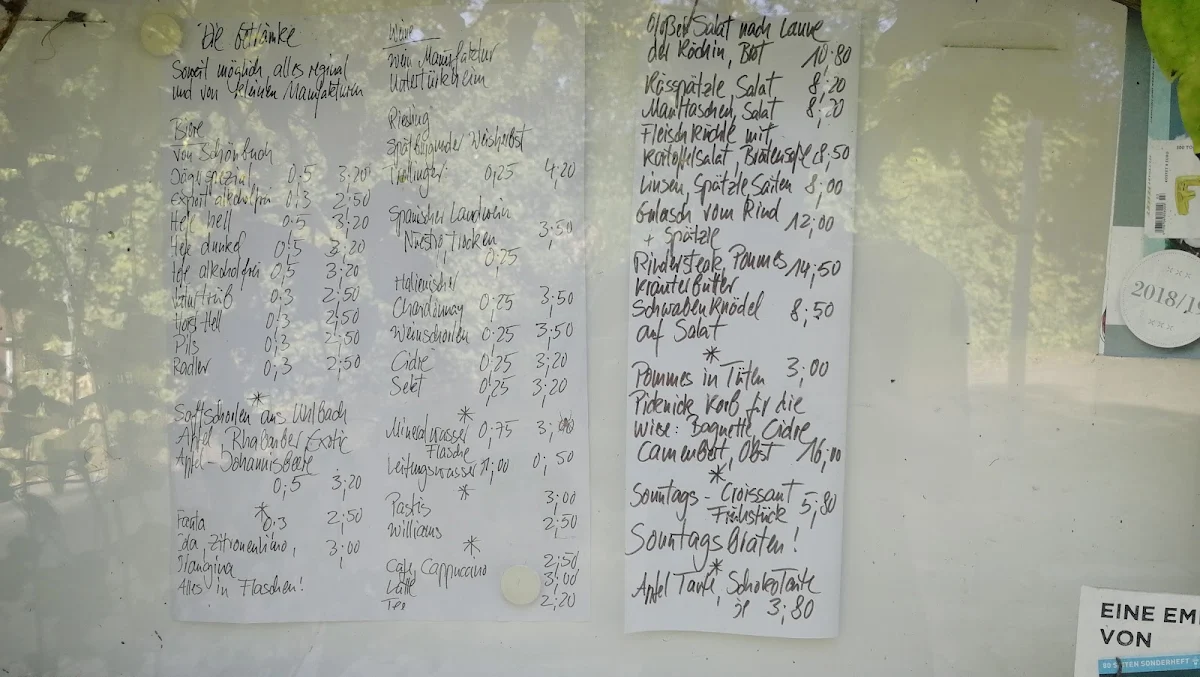 Die Getränke
Soweit möglich, alles regional
und von kleinen Manufakturen
Biere
von Schönbuch
0,5 3,20
Export alkoholfrei 0,3 2,50
Hefe hell 0,5 3,20
Hefe dunkel 0,5 3,20
Hefe alkoholfrei 0,5 3,20
Naturtrüb 0,3 2,50
Hell 0,3 2,50
Pils 0,3 2,50
Radler 0,3 2,50
*
Saftschorlen aus
Apfel - Rhabarber Exotic
Apfel - Johannisbeere
0,5 3,20
*
Fanta 0,3 2,50
Zitronenlimo, 3,00
Orangina
Alles in Flaschen!
Weine
Wein Manufaktur
Untertürkheim
Riesling
Spätburgunder Weisherbst
Trollinger 0,25 4,20
Spanischer Landwein
Nuestro trocken 3,50
0,25
Italienischer
Chardonnay 0,25 3,50
Weinschorlen 0,25 3,50
Cidre 0,25 3,20
Sekt 0,25 3,20
*
Mineralwasser 0,75
Flasche
Leitungswasser 1,00 0,50
*
Pastis 3,00
Williams 2,50
*
Cafe, Cappuccino 2,50
Latte 3,00
Tee 2,20
Großer Salat nach Laune
der Köchin, Brot 10,80
Kässpätzle, Salat 8,20
Maultaschen, Salat 8,20
Fleischküchle mit
Kartoffelsalat, Bratensoße 8,50
Linsen, Spätzle, Saiten 8,00
Gulasch vom Rind 12,00
+ Spätzle
Rindersteak, Pommes 14,50
Kräuterbutter
Schwabenknödel 8,50
auf Salat
*
Pommes in Tüten 3,00
Picknick Korb für die
Wiese: Baguette, Cidre
Camenbert, Obst 16,00
*
Sonntags - Croissant 5,80
Frühstück
Sonntags Braten!
*
Apfel Tarte, Schokotarte
je 3,80
2018/1
EINE EM
VON
SEITEN SONDERHEFT